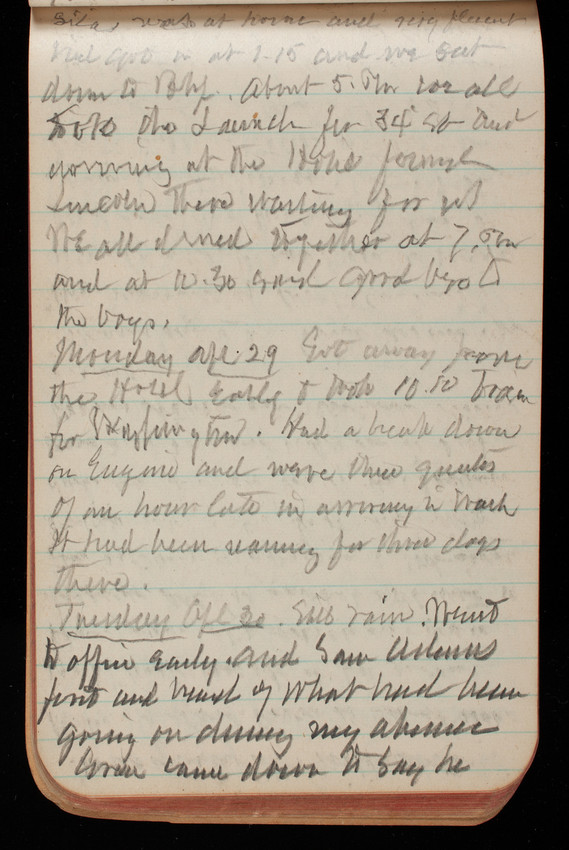 was at home and very pleasant
had got in at 1-15 and we sat
down to . About 5. Pm we all
took the Launch for 34 St and
arriving at the Hotel found
Lincoln there waiting for us
We all dined together at 7, Pm
and at 10.30 said Good bye to
the boys.
Monday Apl. 29 Got away from
the Hotel Early & took 10.50 train
for Washington. Had a break down
on Engine and were three quarters
of an hour late in arriving in Wash
It had been raining for three days
there.
Tuesday Apl 30. Still rain. Went
to office Early. and Saw Adams
first and heard of What had been
going on during my absence
came down to say he